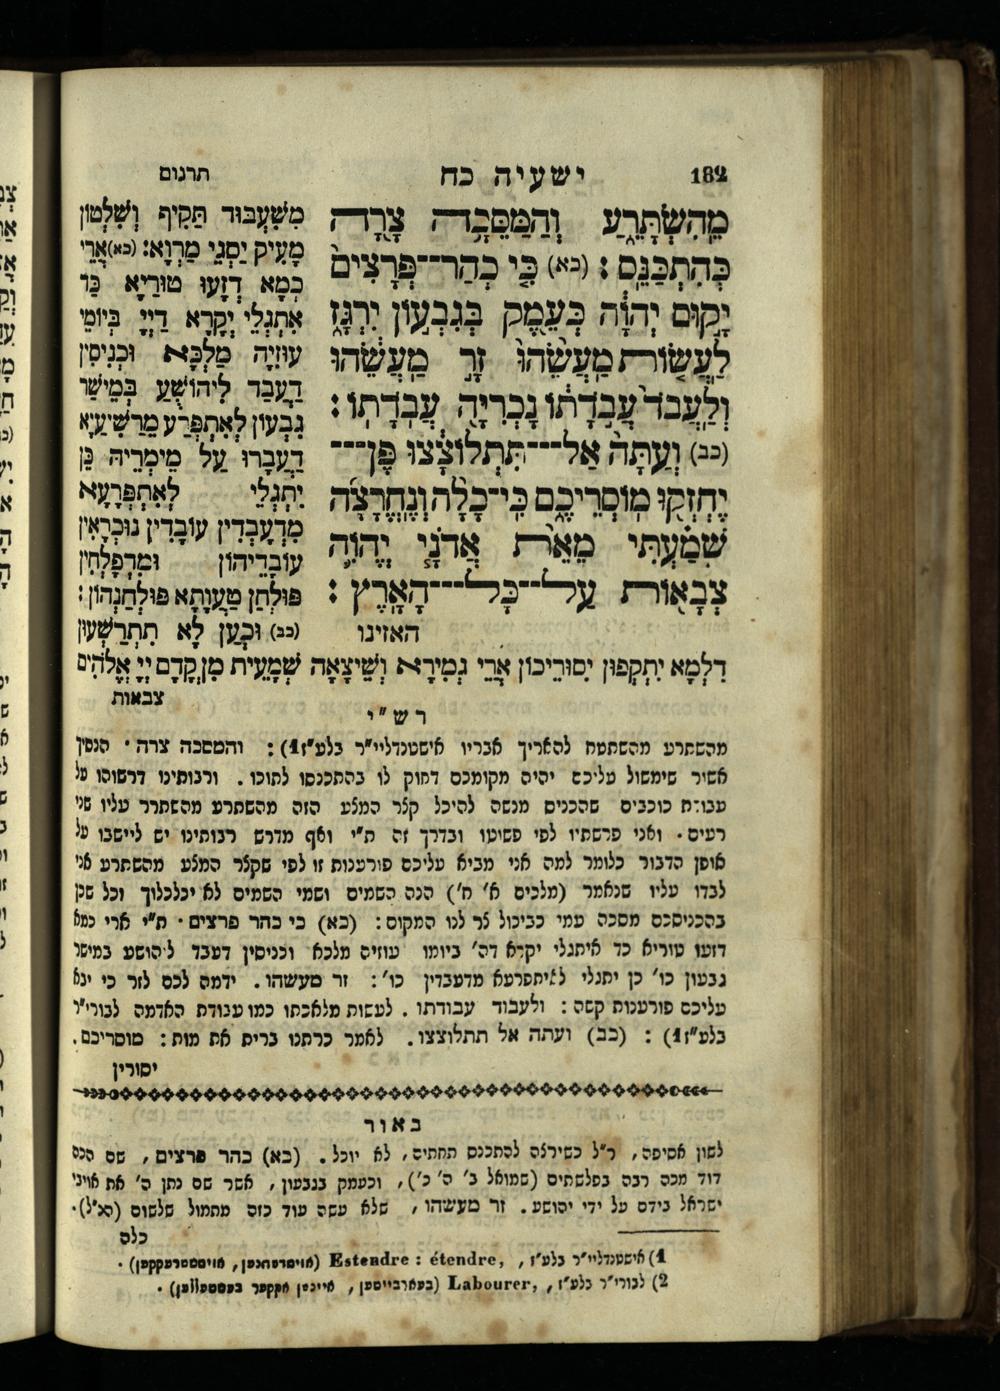 182 ישעיה כח תרגום
מֵֽהִשְׂתָּרֵ֑עַ וְהַמַּסֵּכָ֥ה צָרָ֖ה
כְּהִתְכַּנֵּֽס׃ (כא) כִּ֤י כְהַר־פְּרָצִים֙
יָק֣וּם יְהוָ֔ה כְּעֵ֖מֶק בְּגִבְע֣וֹן יִרְגָּ֑ז
לַעֲשׂ֤וֹת מַעֲשֵׂ֙הוּ֙ זָ֣ר מַעֲשֵׂ֔הוּ
וְלַֽעֲבֹד֙ עֲבֹ֣דָת֔וֹ נָכְרִיָּ֖ה עֲבֹדָתֽוֹ׃
(כב) וְעַתָּה֙ אַל־תִּתְלוֹצָ֔צוּ פֶּֽן־
יֶחְזְק֖וּ מֽוֹסְרֵיכֶ֑ם כִּֽי־כָלָ֨ה וְנֶחֱרָצָ֜ה
שָׁמַ֗עְתִּי מֵאֵ֨ת אֲדֹנָ֧י יֱהוִ֛ה
צְבָא֖וֹת עַל־כָּל־הָאָֽרֶץ׃
האזינו
מִשִׁעְבּוּד תַּקִּיף וְשִׁלְטוֹן
מָעִיק יַסְגֵּי מַרְוָא׃ (כא) אֲרֵי
כְּמָא דְזָעוּ טוּרַיָא כַּד
אִתְגְּלֵי יְקָרָא דַיְיָ בְּיוֹמֵי
עוּזִיָה מַלְכָּא וּכְנִיסִין
דַעֲבַד לִיהוֹשֻׁעַ בְּמֵישַׁר
גִבְעוֹן לְאִתְפְּרַע מֵרַשִׁיעַיָא
דַעֲבָרוּ עַל מֵימְרֵיהּ כֵּן
יִתְגְּלֵי לְאִתְפְּרָעָא
מִדְעָבְדִין עוֹבָדִין נוּכְרָאִין
עוֹבָדֵיהוֹן וּמִדְפָלְחִין
פּוּלְחַן טַעֲוָתָא פּוּלְחַנְהוֹן׃
(כב) וּכְעַן לָא תִתְרַשְׁעוּן
דִלְמָא יִתְקְפוּן יִסוּרֵיכוֹן אֲרֵי גְמִירָא וְשֵׁיצָאָה שְׁמָעִית מִן קֳדָם יְיָ אֱלֹהִים
צבאות
רש"י
מהשתרע מהשתטח להאריך אבריו אישטנדליי"ר בלע"ז1) : והמסכה צרה . הנסיך
אשיר שימשול עליכם יהיה מקומכם דחוק לו בהתכנסו לתוכו . ורבותינו דרשוהו על
עבודת כוכבים שהכניס מנשה להיכל קצר המצע הזה מהשתרע מהשתרר עליו שני
רעים . ואני פרשתיו לפי פשוטו ובדרך זה ת"י ואף מדרש רבותינו יש ליישבו על
אופן הדבור כלומר למה אני מביא עליכם פורענות זו לפי שקצר המצע מהשתרע אני
לבדו עליו שנאמר (מלכים א' ח') הנה השמים ושמי השמים לא יכלכלוך וכל שכן
בהכניסכם מסכה עמי כביכול צר לנו המקום : (כא) כי כהר פרצים . ת"י ארי כמא
דזעו טוריא כד איתגלי יקרא דה' ביומו עוזיה מלכא וכניסין דעבד ליהושע במישר
גבעון כו' כן יתגלי לאיתפרעא מדעבדין כו' : זר מעשהו . ידמה לכם לזר כי יבא
עליכם פורענות קשה : ולעבוד עבודתו . לעשות מלאכתו כמו עבודת האדמה לבורי"ר
בלע"ז1) : (כב) ועתה אל תתלוצצו . לאמר כרתנו ברית את מות : מוסריכם .
יסורין
באור
לשון אסיפה , ר"ל כשירצה להתכנס תחתיה , לא יוכל . (כא) כהר פרצים , שם הכה
דוד מכה רבה בפלשתים (שמואל ב' ה' כ') , וכעמק בגבעון , אשר שם נתן ה' את אויבי
ישראל בידם על ידי יהושע . זר מעשהו , שלא עשה עוד כזה מתמול שלשום (הכ"ל) .
כלה
1) אישטנדליי"ר בלע"ז , Estendre : étendre, (אויסדעהנען , אויסשטרעקקען) .
2) לבורי"ר בלע"ז , Labourer, (בעארבייטען , איינען אקקער בעשטעללען) .